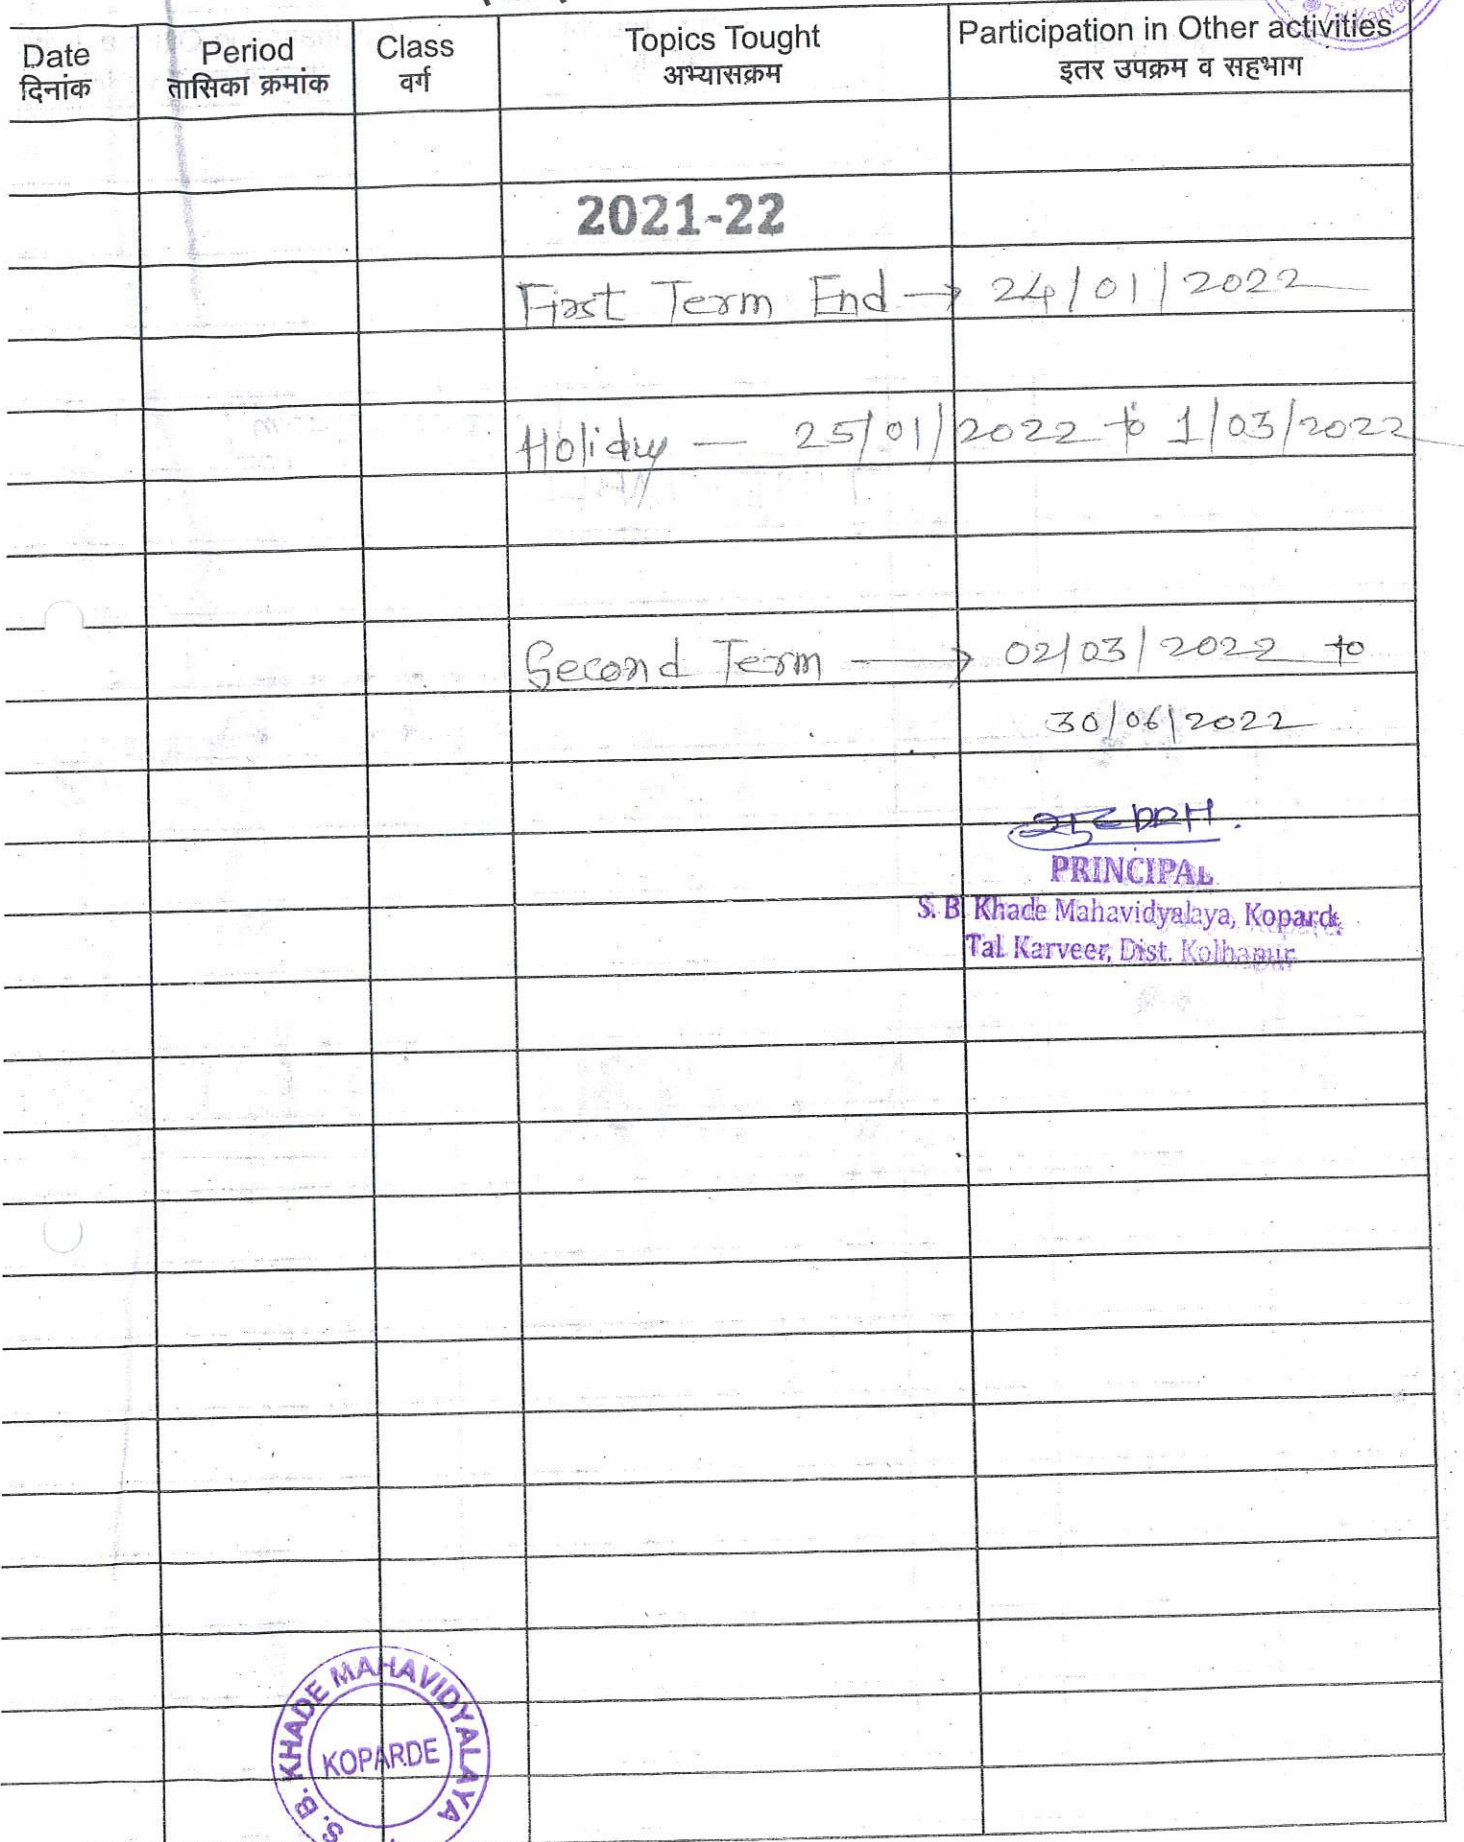 Date Period Class Topics Tought Participation in Other activities
दिनांक तासिका क्रमांक वर्ग अभ्यासक्रम इतर उपक्रम व सहभाग
2021-22
First Term End → 24/01/2022
Holiday — 25/01/2022 to 1/03/2022
Second Term → 02/03/2022 to
30/06/2022
PRINCIPAL
S. B. Khade Mahavidyalaya, Koparde
Tal. Karveer, Dist. Kolhapur
S. B. KHADE MAHAVIDYALAYA
KOPARDE